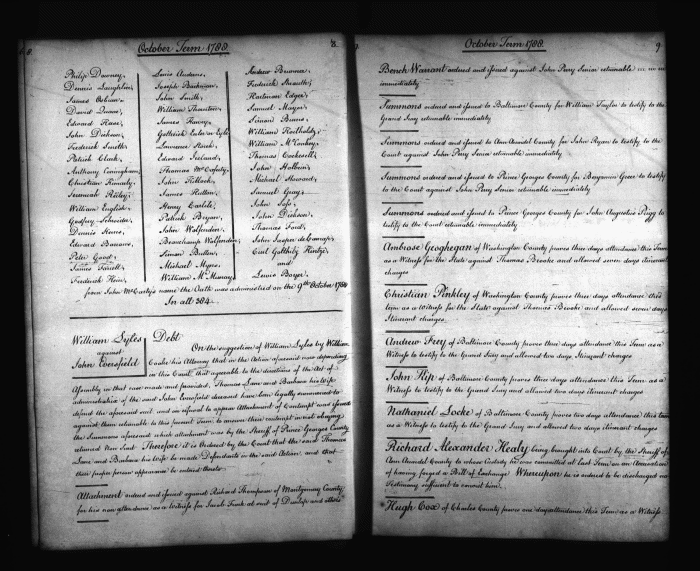 October Term 1788.
8.
Philip Downey,
Dennis Laughlin,
James
David
Edward
John Dickson,
Frederick Smith
Patrick Clark,
Anthony Cunningham,
Christian
Jeremiah
William English,
Godfrey Schneider,
Dennis
Edward
Peter Good,
James
Frederick
Lewis Andrews,
Joseph
John Smith,
William Thornton,
James Harvey,
Gotleib
Lawrence
Edward Ireland,
Thomas McCafferty,
John
James
Henry Carlile,
Patrick Bryan,
John Wolfenden,
Beauchamp Wolfenden,
Simon
Michael Myers,
William McMurray,
Andrew
Frederick
Hartman
Samuel Mayer,
Simon Burns,
William
William McConkey,
Thomas Cockerell,
John
Michael Steward,
Samuel Gray,
John
John Dickson,
Thomas Ford,
John
Carl Gotthilf
and
Lewis Boyer,
from John McCarty's name the Oath was administered on the 9th October 1788
In all 584.
William Lyles
against
John Eversfield
Debt
On the suggestion of William Lyles by William
Cooke his Attorney that in the Action aforesaid now depending
in this Court, that agreeable to the directions of the Act of
Assembly in that case made and provided, Thomas Lane and Barbara his wife
administratrix of the said John Eversfield deceased have been legally summoned to
defend the aforesaid suit, and on refusal to appear Attachment of Contempt was issued
against them returnable to this present Term, to answer their contempt in not obeying
the Summons aforesaid which attachment was by the Sheriff of Prince Georges County
returned Non Sunt Therefore it is Ordered by the Court that the said Thomas
Lane and Barbara his wife be made Defendants in the said Action, and that
their proper person appearance be entered thereto
Attachment ordered and issued against Richard Thompson of Montgomery County,
for his non attendance as a Witness for Jacob Funk at suit of Dunlop and others
October Term 1788.
9.
Bench Warrant ordered and issued against John Perry Senior returnable
immediately
Summons ordered and issued to Baltimore County for William Taylor to testify to the
Grand Jury returnable immediately
Summons ordered and issued to Ann Arundel County for John Ryan to testify to the
Court against John Perry Senior returnable immediately
Summons ordered and issued to Prince Georges County for Benjamin Green to testify
to the Court against John Perry Senior returnable immediately
Summons ordered and issued to Prince Georges County for John Augustine Pigg to
testify to the Court returnable immediately.
Ambrose Geoghegan of Washington County proves three days attendance this Term
as a Witness for the State against Thomas Brooke and allowed seven days Itinerant
charges
Christian Pinkley of Washington County proves three days attendance this
term as a Witness for the State against Thomas Brooke and allowed seven days
Itinerant charges.
Andrew Frey of Baltimore County proves three days attendance this Term as a
Witness to testify to the Grand Jury and allowed two days Itinerant charges
John Hip of Baltimore County proves three days attendance this Term as a
Witness to testify to the Grand Jury and allowed two days Itinerant charges
Nathaniel Locke of Baltimore County proves two days attendance this term
as a Witness to testify to the Grand Jury and allowed two days Itinerant charges
Richard Alexander Healy being brought into Court by the Sheriff of
Ann Arundel County to whose Custody he was committed at last Term on an Accusation
of having forged a Bill of Exchange Whereupon he is ordered to be discharged no
Testimony sufficient to convict him.
Hugh Cox of Charles County proves one days attendance this Term as a Witness